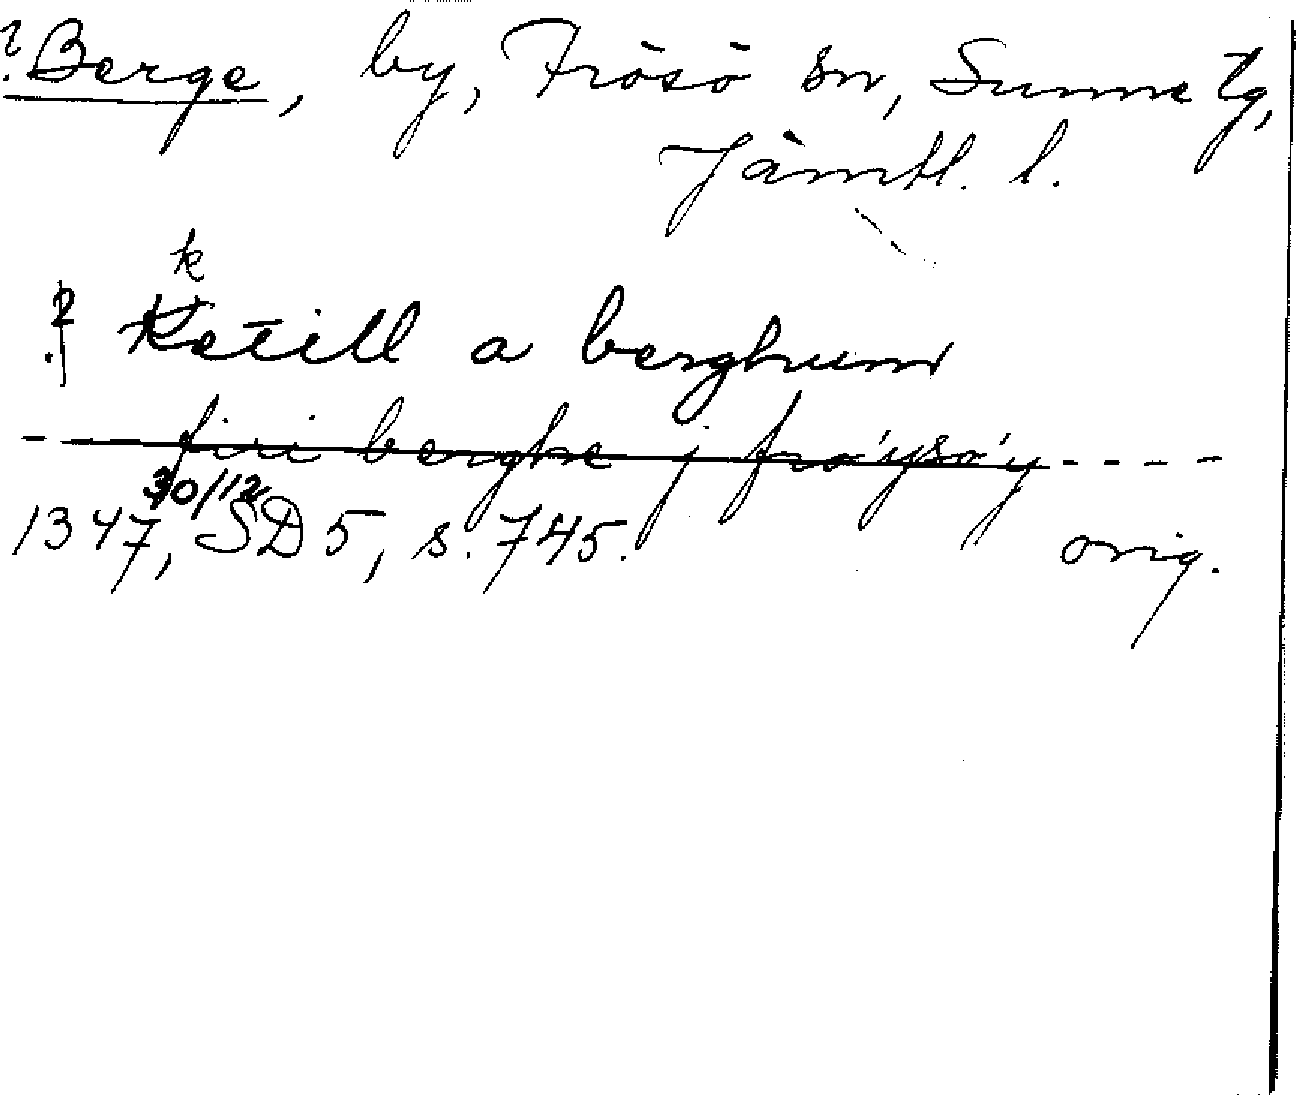 ? Berge, by, Frösö sn, Sunne tg,
Jämtl. l.
k
? Ketill a berghum
firi berghe j frøysøy - - - -
30/12
1347, SD 5, s. 745. orig.